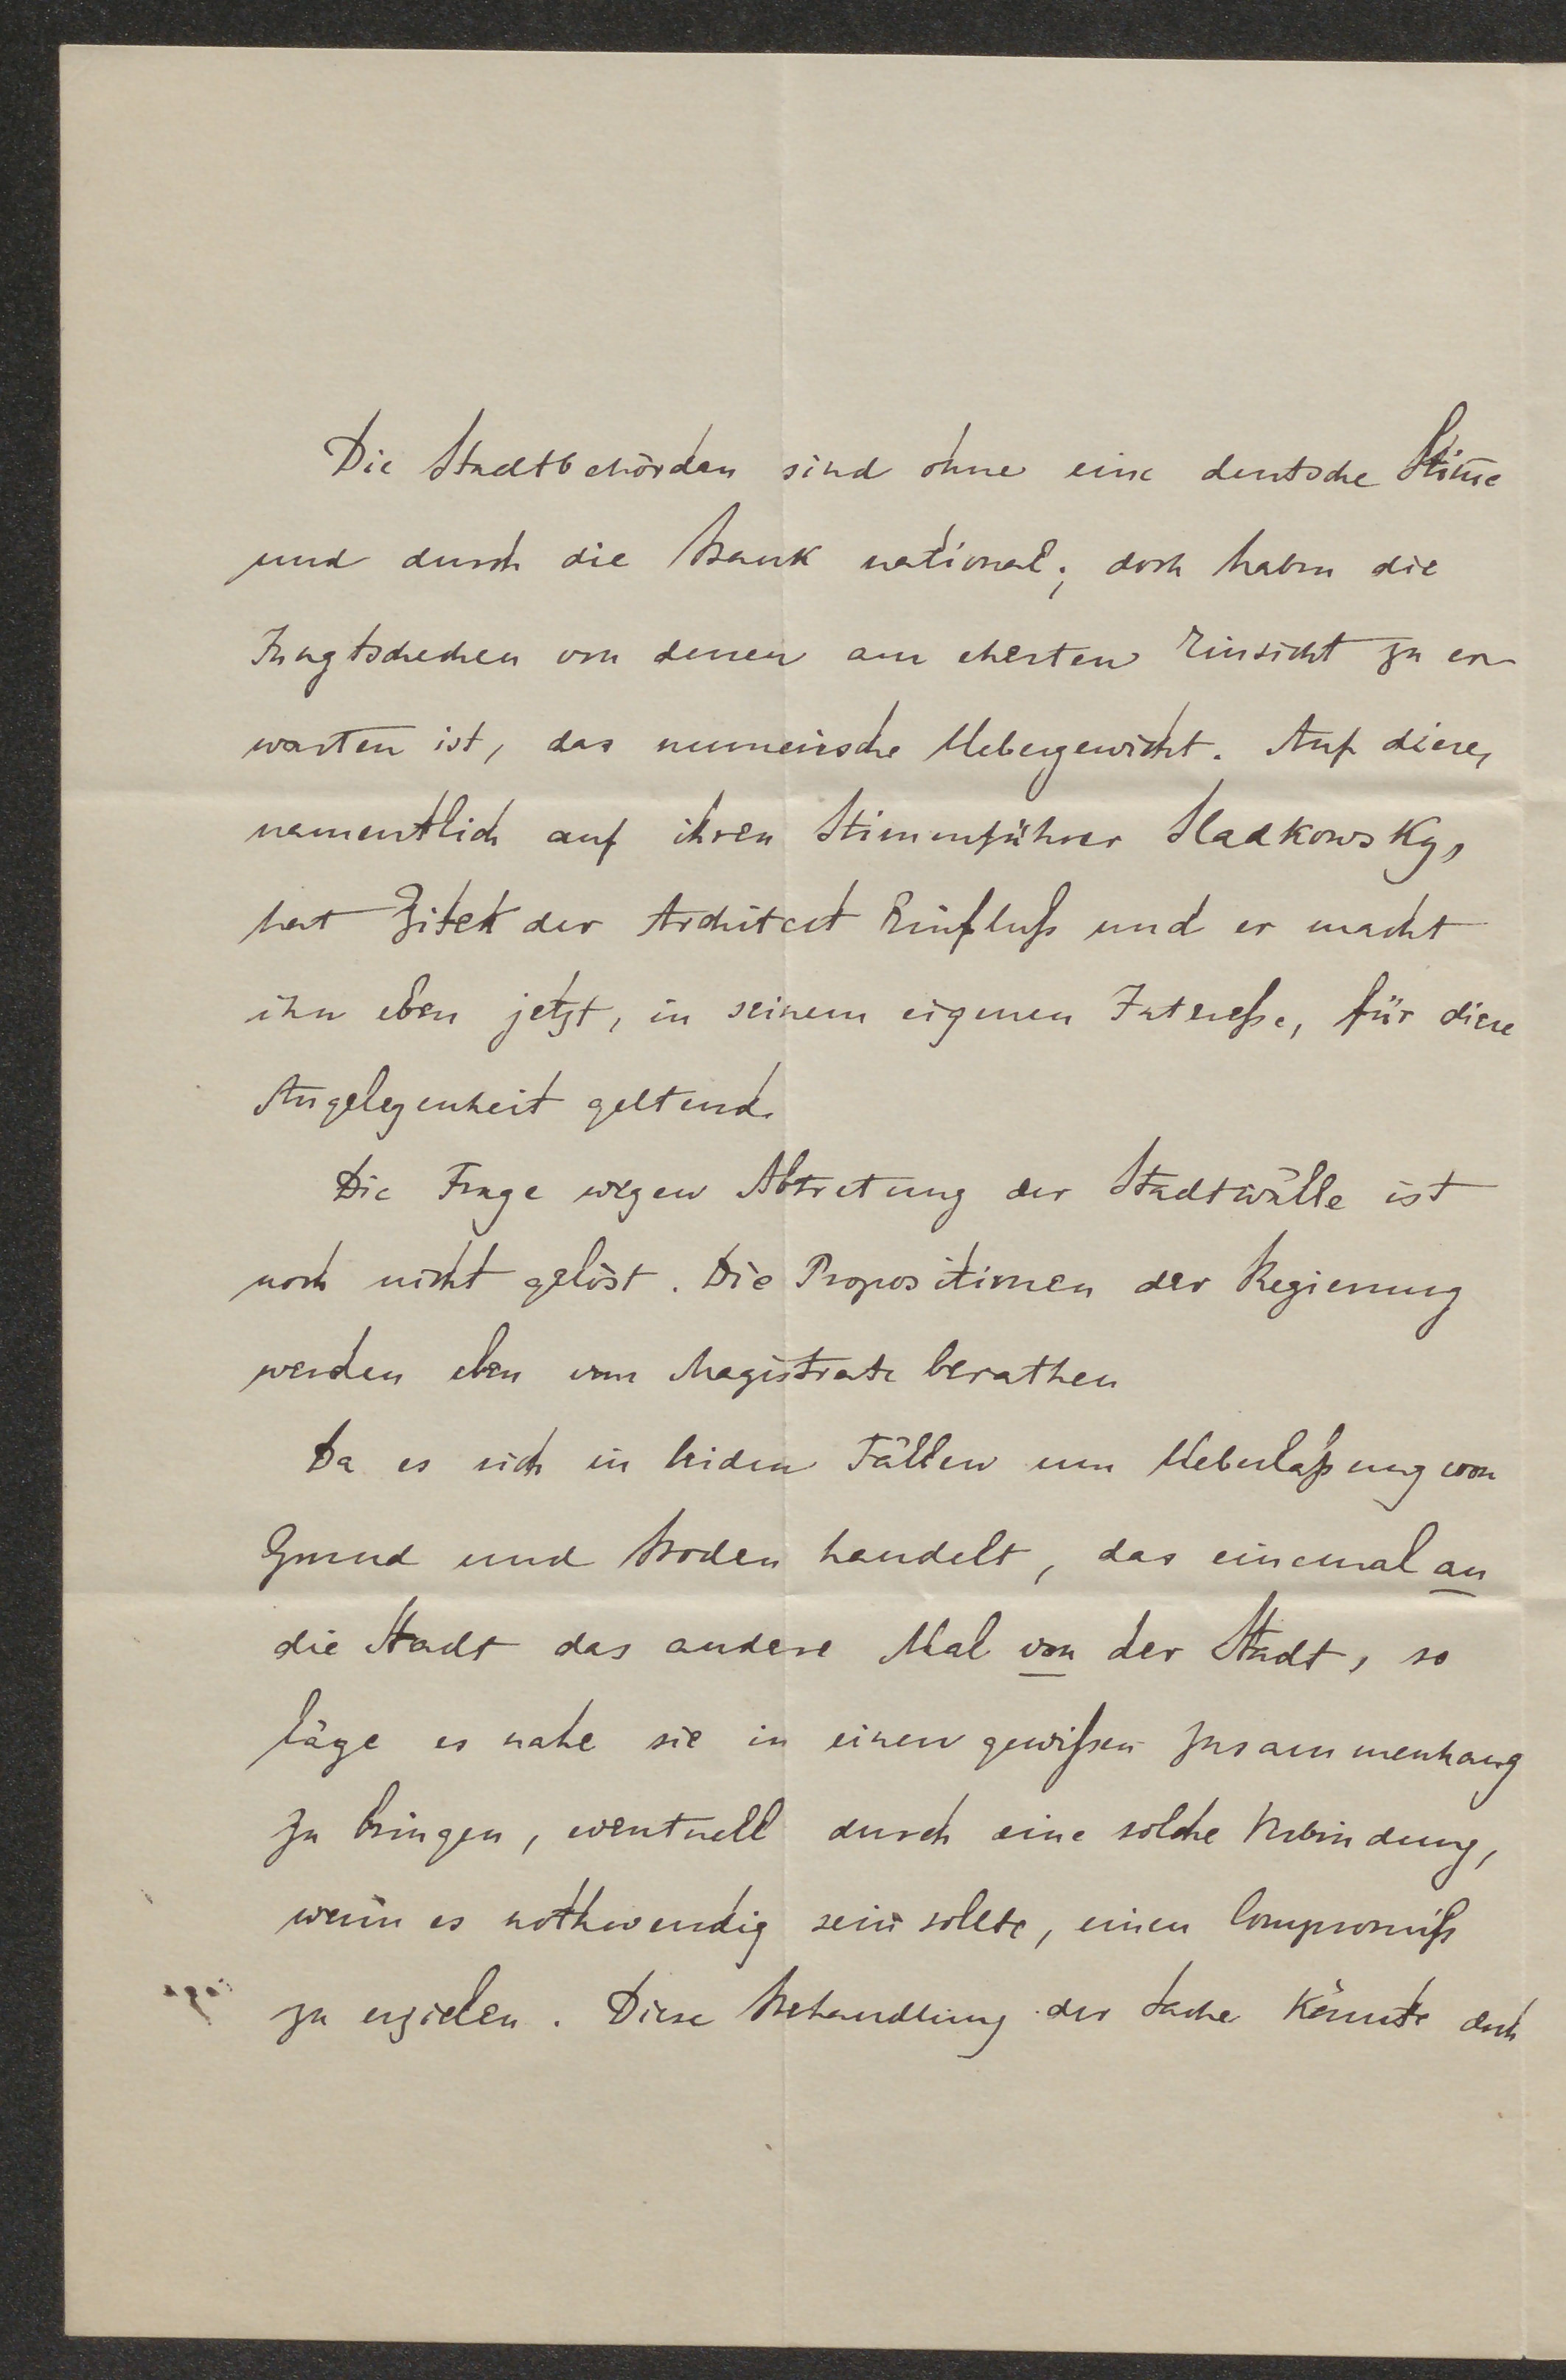 Die Stadtbehörden sind ohne eine deutsche Stim̅e
und durch die Bank national; doch haben die
Jungtschechen von denen am ehesten Einsicht zu er-
warten ist, das numerische Uebergewicht. Auf diese,
namentlich auf ihren Stimmführer Sladkowsky,
hat Zitek der Architect Einfluß und er macht
ihn eben jetzt, in seinem eigenen Intereße, für diese
Angelegenheit geltend.
Die Frage wegen Abtretung der Stadtwälle ist
noch nicht gelöst. Die Propositionen der Regierung
werden eben vom Magistrate berathen
Da es sich in beiden Fällen um Ueberlaßung von
Grund und Boden handelt, das einemal an
die Stadt das andere Mal von der Stadt, so
läge es nahe sie in einen gewißen Zusammenhang
zu bringen, eventuell durch eine solche Verbindung,
wenn es nothwendig sein sollte, einen Compromiß
zu erzielen. Diese Behandlung der Sache könnte doch